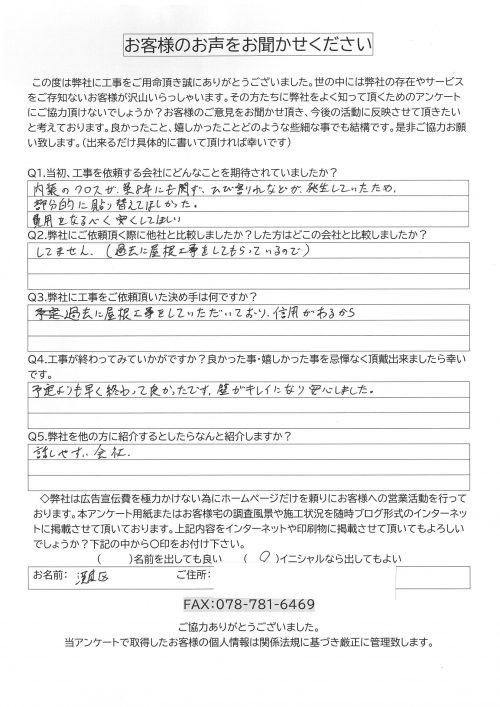 お客様のお声をお聞かせください
この度は弊社に工事をご用命頂き誠にありがとうございました。世の中には弊社の存在やサービス
をご存知ないお客様が沢山いらっしゃいます。その方たちに弊社をよく知って頂くためのアンケート
にご協力頂けないでしょうか？お客様のご意見をお聞かせ頂き、今後の活動に反映させて頂きたい
と考えております。良かったこと、嬉しかったことどのような些細な事でも結構です。是非ご協力お願
い致します。（出来るだけ具体的に書いて頂ければ幸いです）
Q1.当初、工事を依頼する会社にどんなことを期待されていましたか？
内装のクロスが、築8年にも関ず、ひび割れなどが、発生していたため、
部分的に貼り替えてほしかった。
費用をなるべく安くしてほしい
Q2.弊社にご依頼頂く際に他社と比較しましたか？した方はどこの会社と比較しましたか？
してません。（過去に屋根工事をしてもらっているので）
Q3.弊社に工事をご依頼頂いた決め手は何ですか？
過去に屋根工事をしていただいており、信用があるから
Q4.工事が終わってみていかがですか？良かった事・嬉しかった事を忌憚なく頂戴出来ましたら幸い
です。
予定よりも早く終わって良かったです。壁がキレイになり安心しました。
Q5.弊社を他の方に紹介するとしたらなんと紹介しますか？
話しやすい会社.
◇弊社は広告宣伝費を極力かけない為にホームページだけを頼りにお客様への営業活動を行って
おります。本アンケート用紙またはお客様宅の調査風景や施工状況を随時ブログ形式のインターネッ
トに掲載させて頂いております。上記内容をインターネットや印刷物に掲載させて頂いてもよろしい
でしょうか？下記の中から〇印をお付け下さい。
（　　）名前を出しても良い　（ ○ ）イニシャルなら出してもよい
お名前：　　　ご住所：
FAX:078-781-6469
ご協力ありがとうございました。
当アンケートで取得したお客様の個人情報は関係法規に基づき厳正に管理致します。